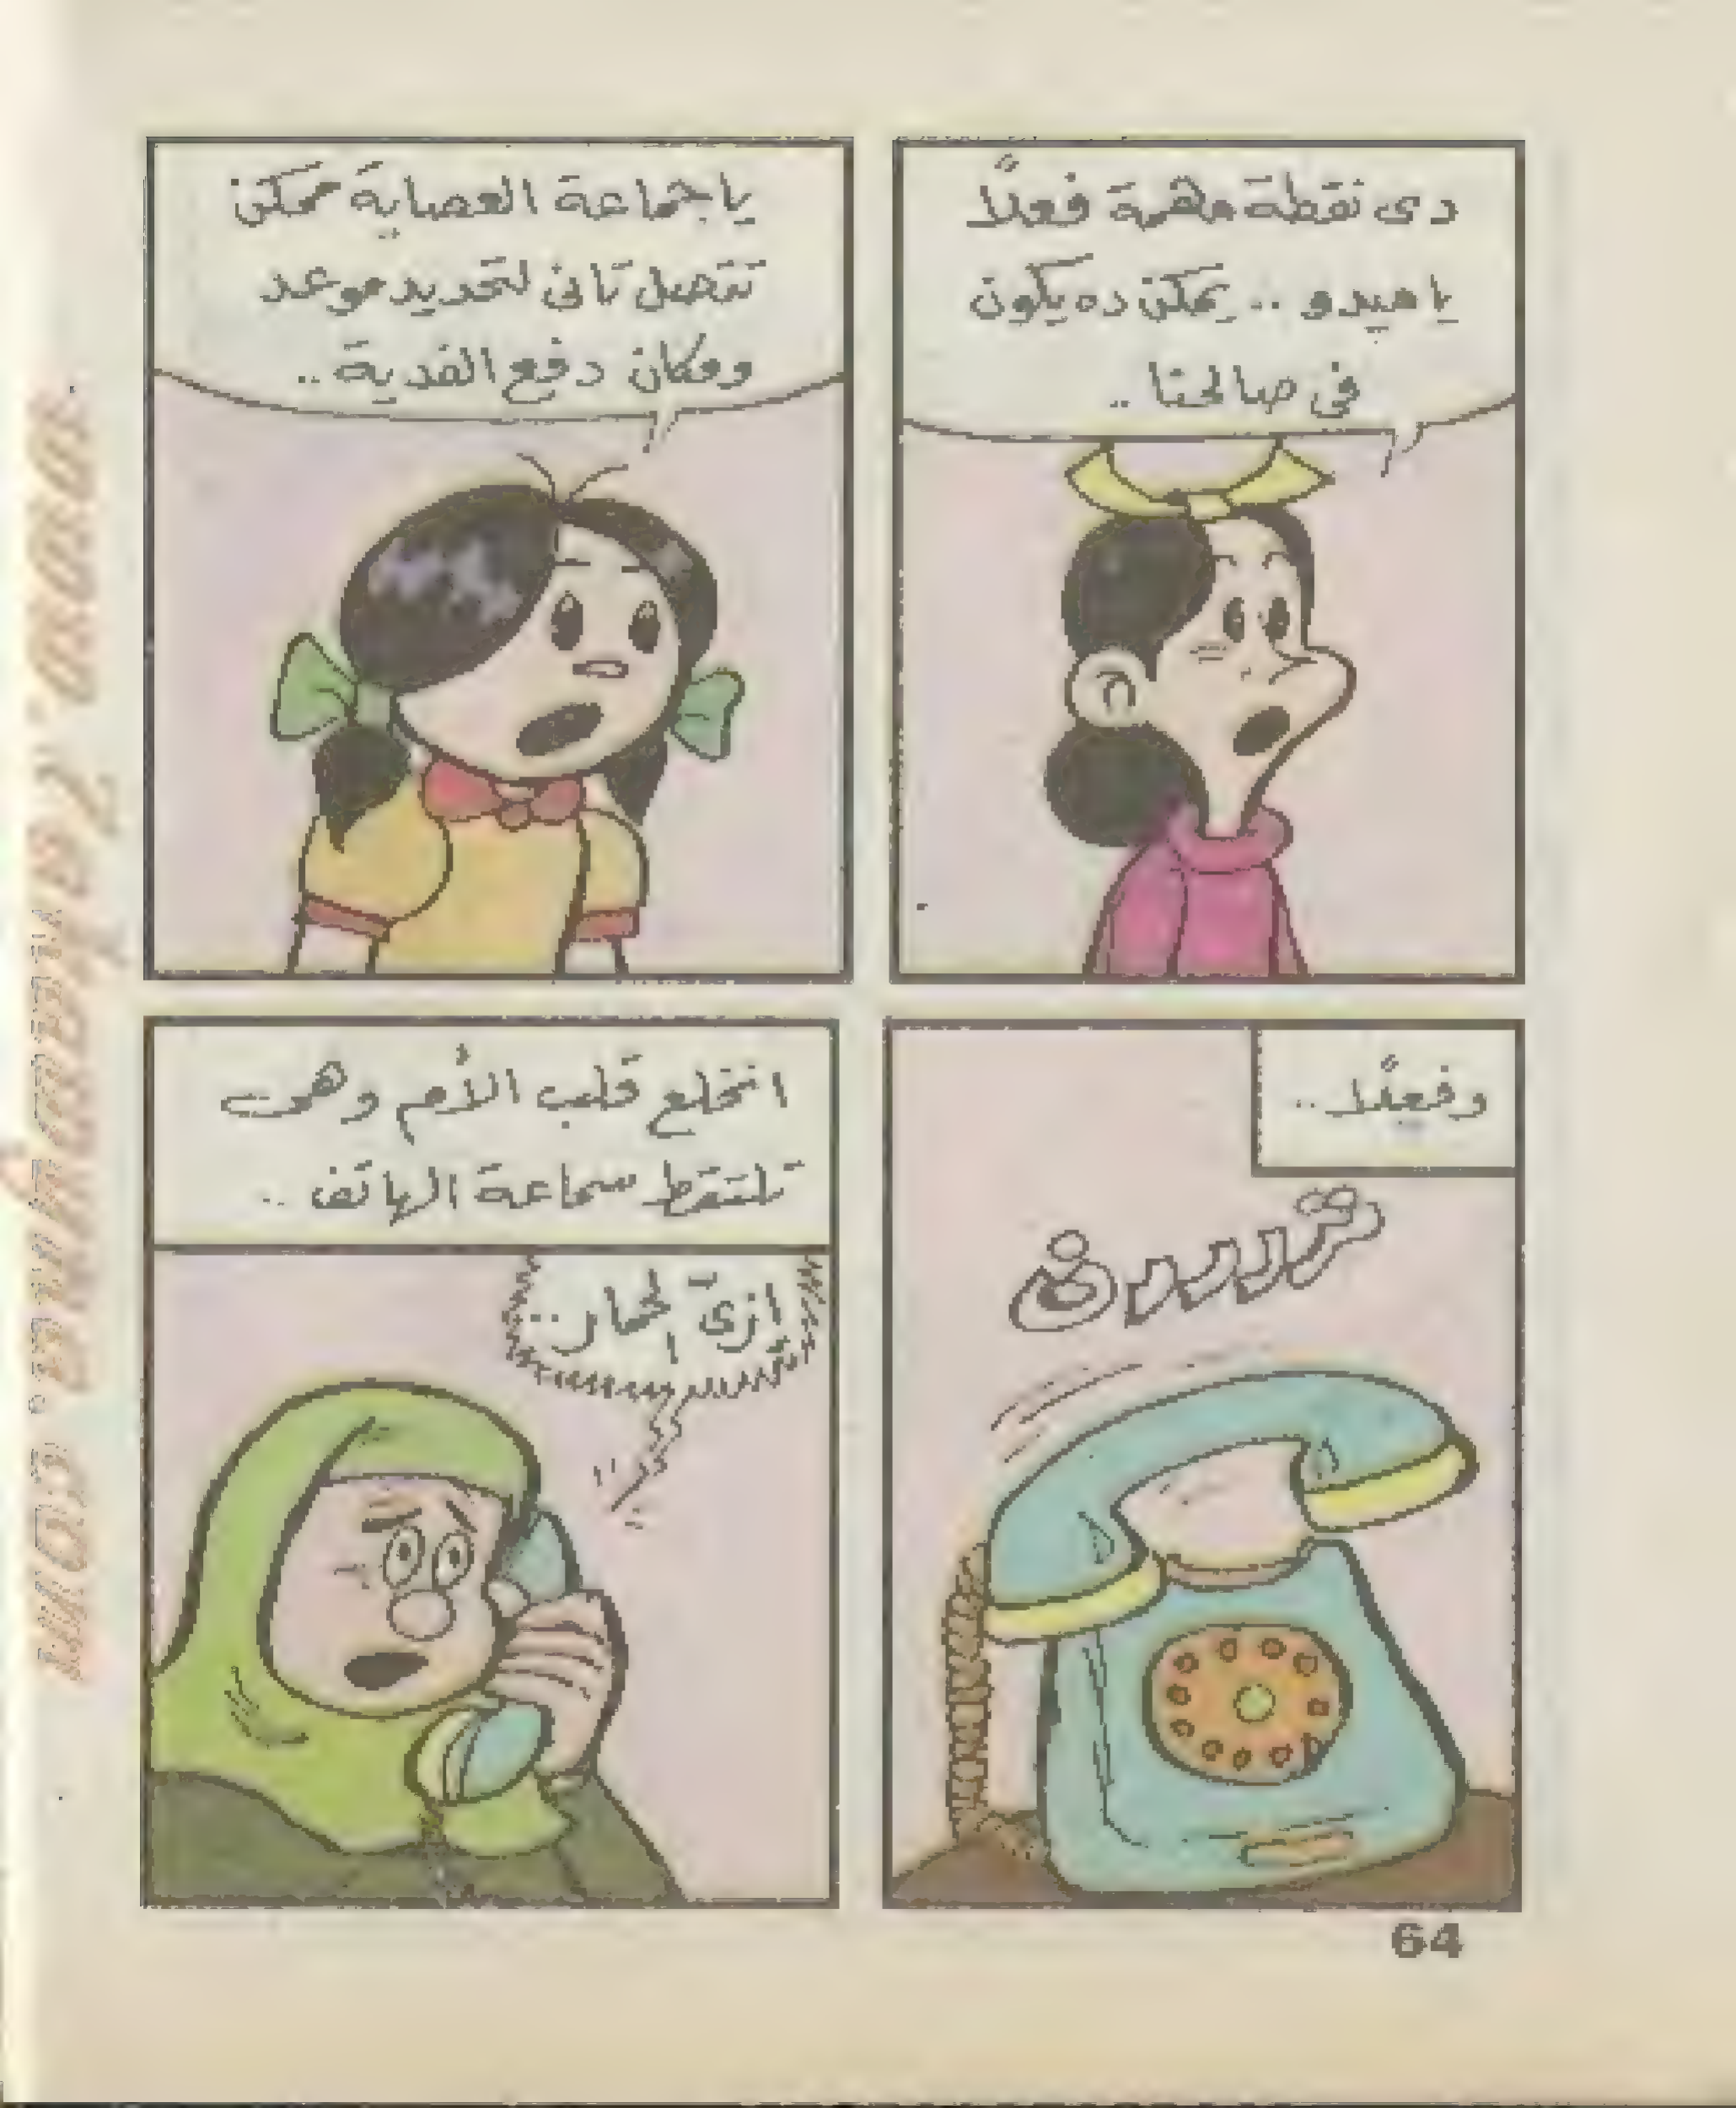 دى نقطة مهمة فعلاً
يا ميدو .. يمكن ده يكون
فى صالحنا ..
يا جماعة العصابة ممكن
تتصل تانى لتحديد موعد
ومكان دفع الفدية ..
وفعلاً ..
ترررررن
انخلع قلب الأم وهى
تلتقط سماعة الهاتف ..
64